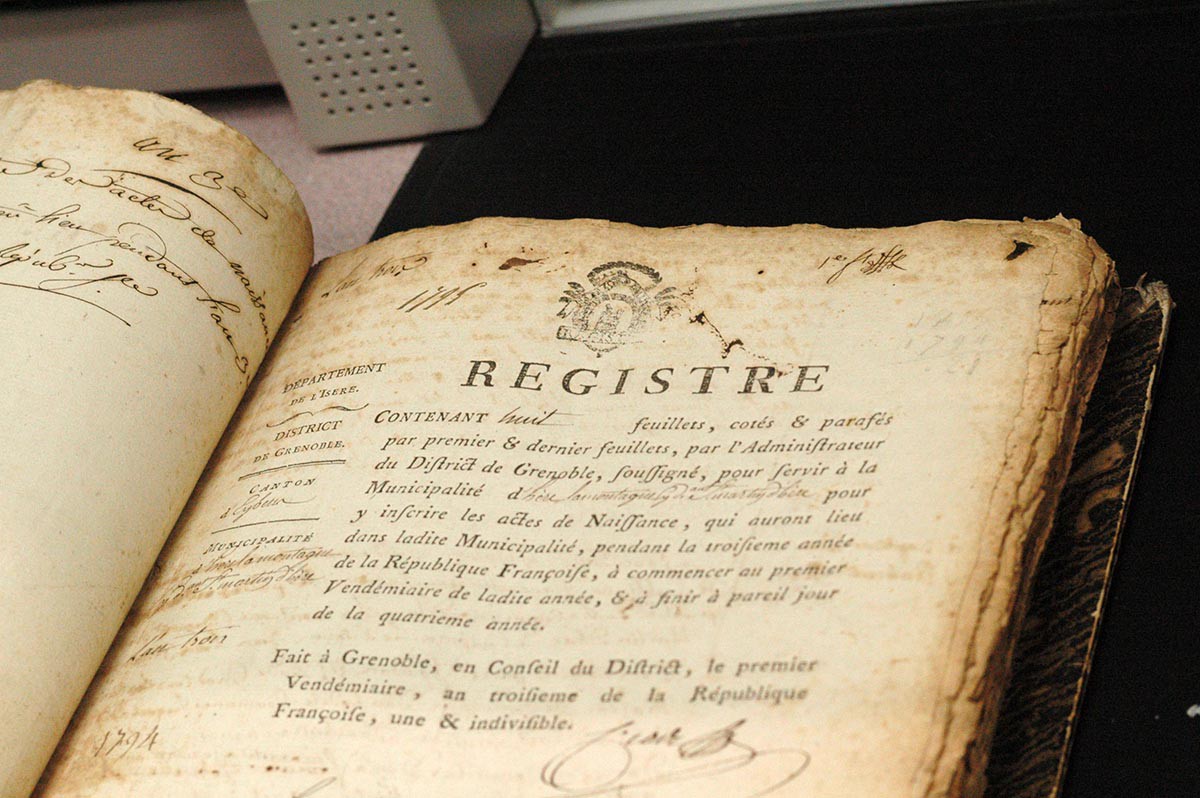 an 3e
actes de naissan
lieu pendant l'an 3e
L'an trois
1er f
REGISTRE
DEPARTEMENT
DE L'ISERE.
DISTRICT
DE GRENOBLE.
CANTON
d'Eybens
MUNICIPALITÉ
d'hère la montagne
L'an trois
1794
CONTENANT huit feuillets, cotés & parafés
par premier & dernier feuillets, par l'Adminiſtrateur
du Diſtrict de Grenoble, ſouſſigné, pour ſervir à la
Municipalité d'hère la montagne cy dvt St martin d'hère pour
y inſcrire les actes de Naiſſance, qui auront lieu
dans ladite Municipalité, pendant la troiſieme année
de la République Françoiſe, à commencer au premier
Vendémiaire de ladite année, & à finir à pareil jour
de la quatrieme année.
Fait à Grenoble, en Conſeil du Diſtrict, le premier
Vendémiaire, an troiſieme de la République
Françoiſe, une & indiviſible.